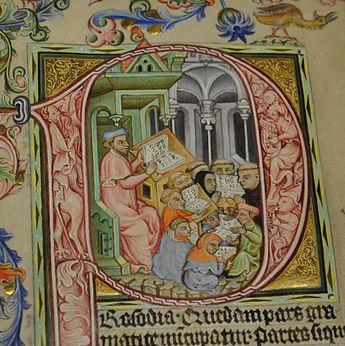 PRosodia · Quedam pars gra
matice nūcupatur · Partes siqui